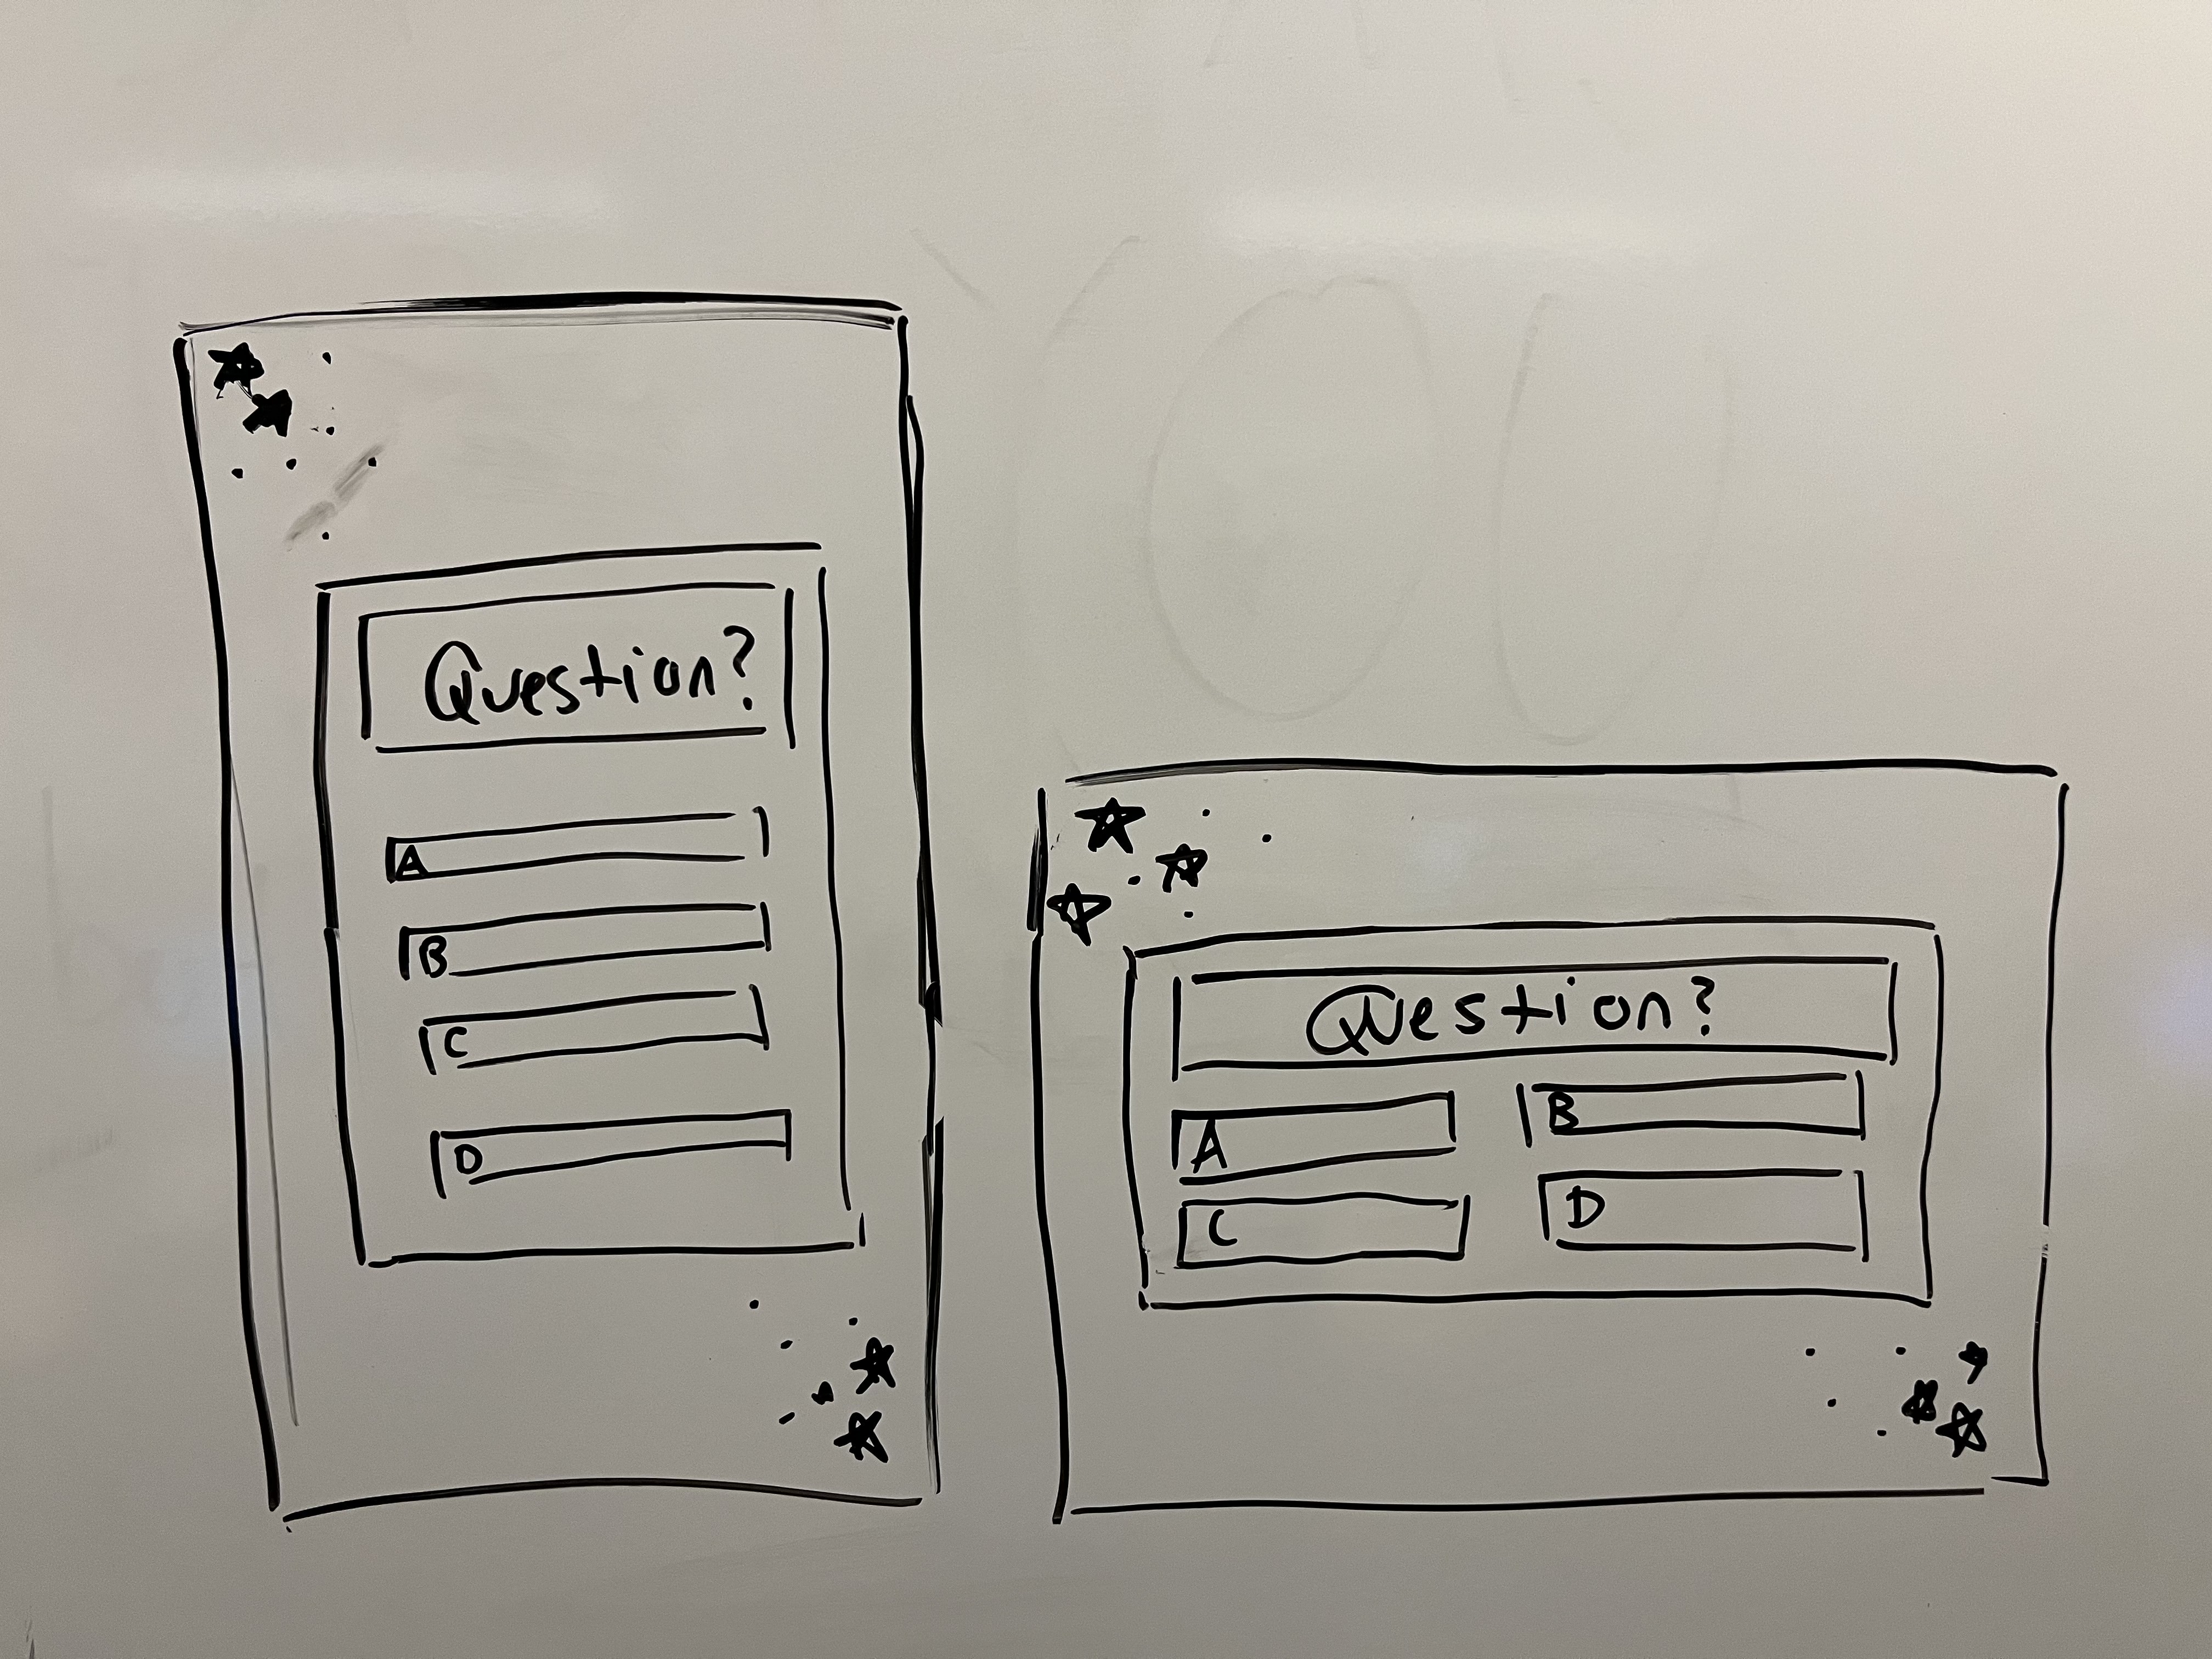 Question?
A
B
C
D
Question?
A
B
C
D
YOU